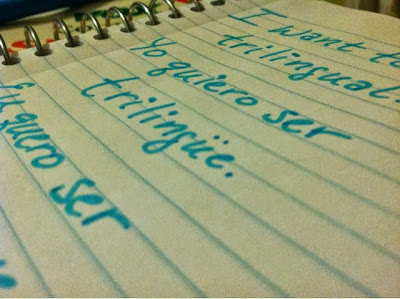 I want to
trilingual.
Yo quiero ser
trilingüe.
Eu quero ser